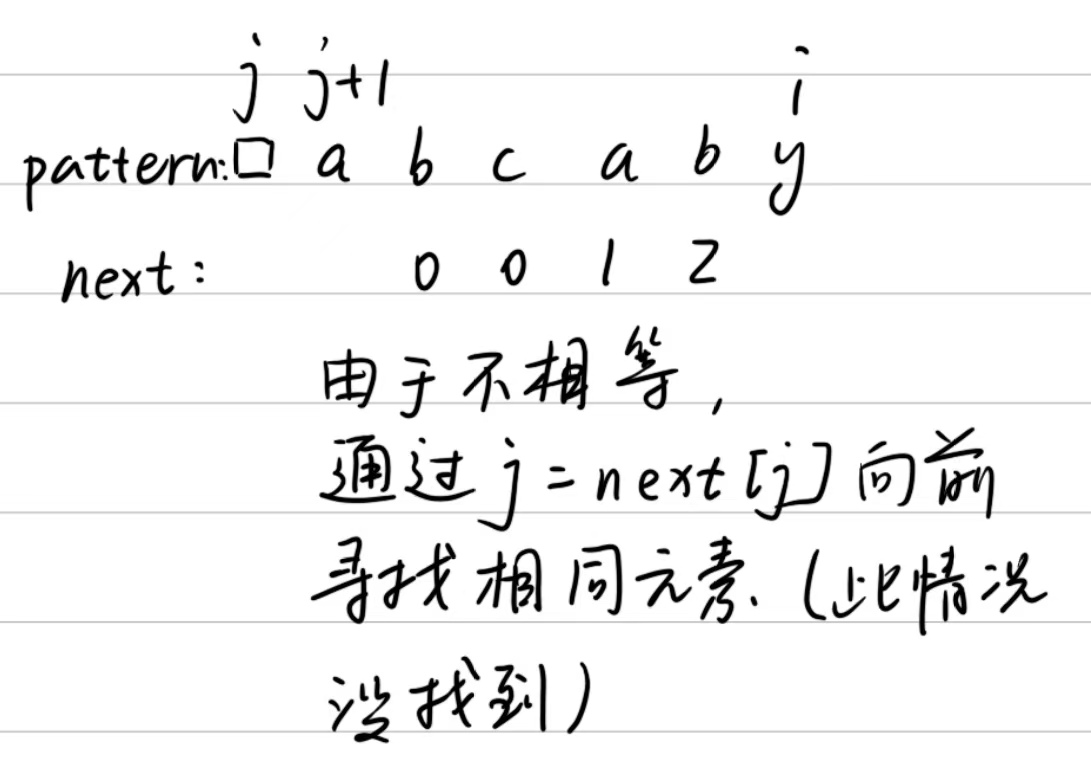 j j+1 i
pattern:□ a b c a b y
next: 0 0 1 2
由于不相等,
通过 j=next[j] 向前
寻找相同元素.(此情况
没找到)